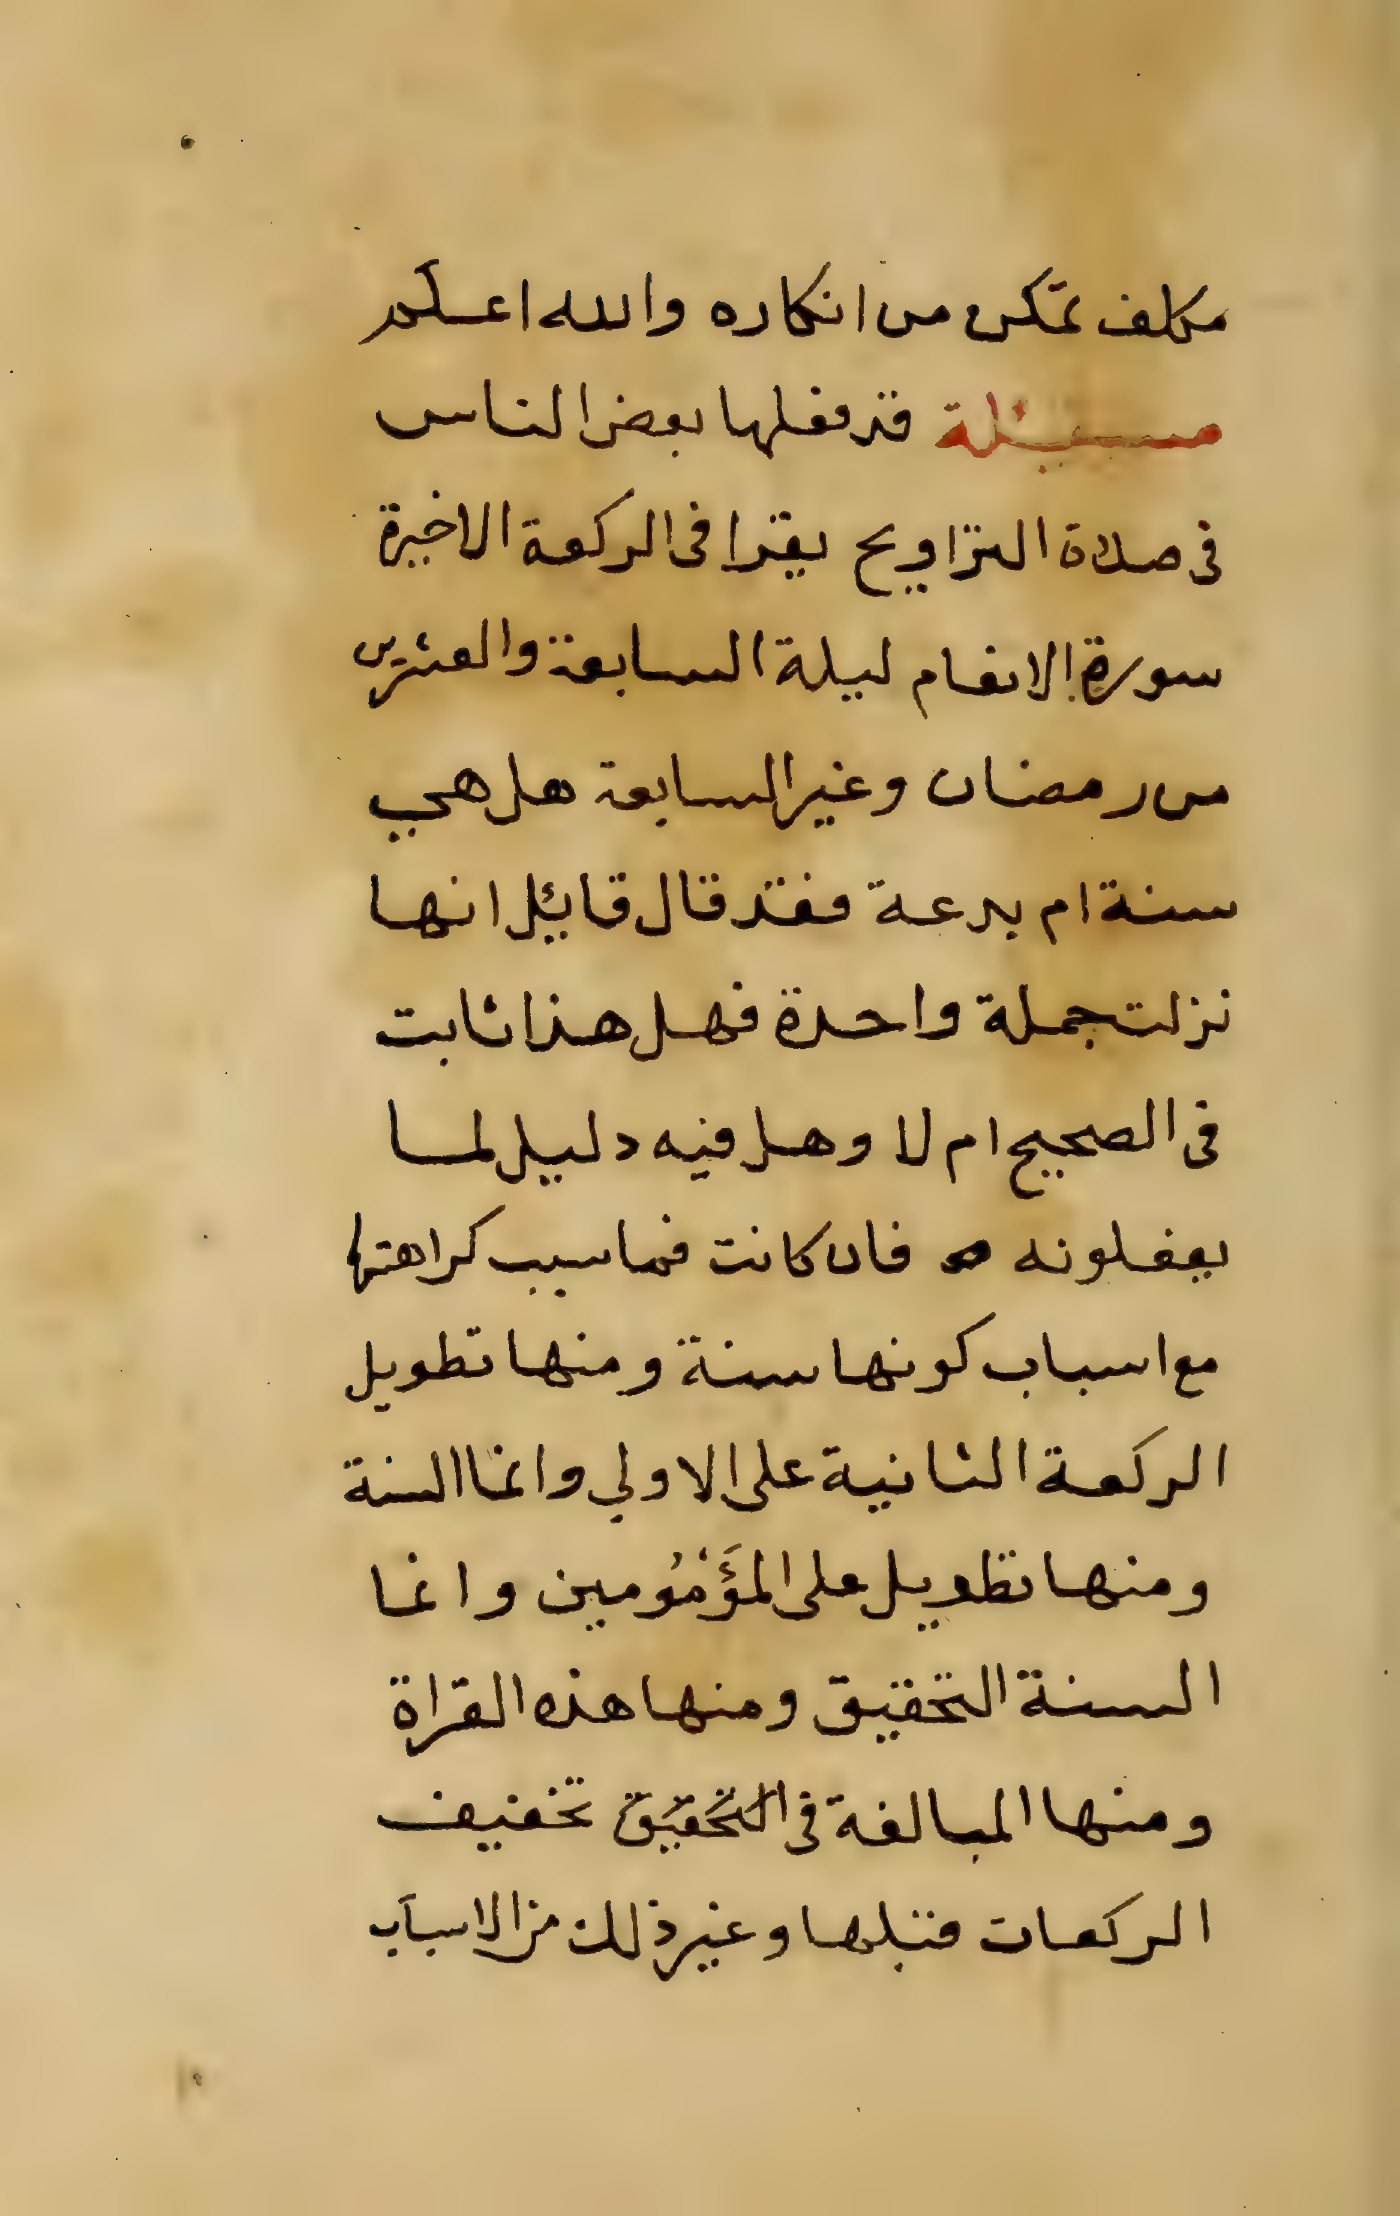 مكلف تمكن من انكاره والله اعلم
مسئلة قد فعلها بعض الناس
فى صلاة التراويح يقرا فى الركعة الاخيرة
سورة الانعام ليلة السابعة والعشرين
من رمضان وغير السابعة هل هي
سنة ام بدعة فقد قال قائل انها
نزلت جملة واحدة فهل هذا ثابت
فى الصحيح ام لا وهل فيه دليل لما
يفعلونه فان كانت فما سبب كراهتها
مع اسباب كونها سنة ومنها تطويل
الركعة الثانية على الاولي وانما السنة
ومنها تطويل على المؤَمُومين وانما
السنة التخفيق ومنها هذه القراة
ومنها المبالغة فى التخقيق تخفيف
الركعات قبلها وغير ذلك من الاسباب